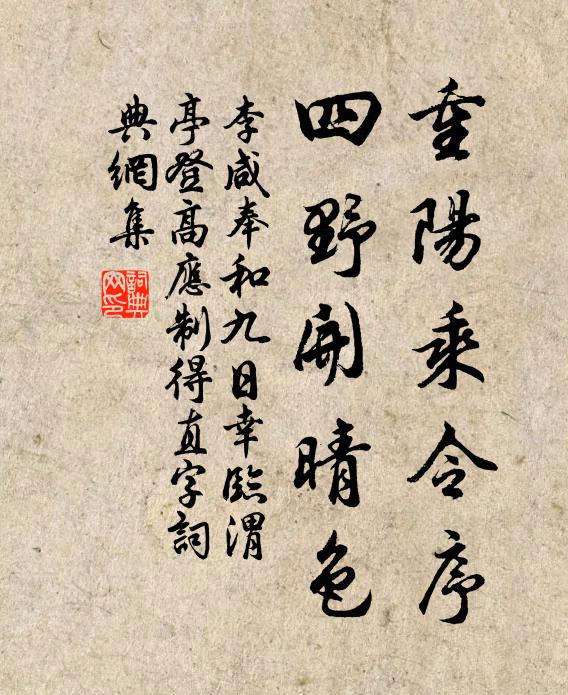 重陽乘令序
四野開晴色
李咸奉和九日幸臨渭
亭登高應制得直字詞
典網集
詞典網印